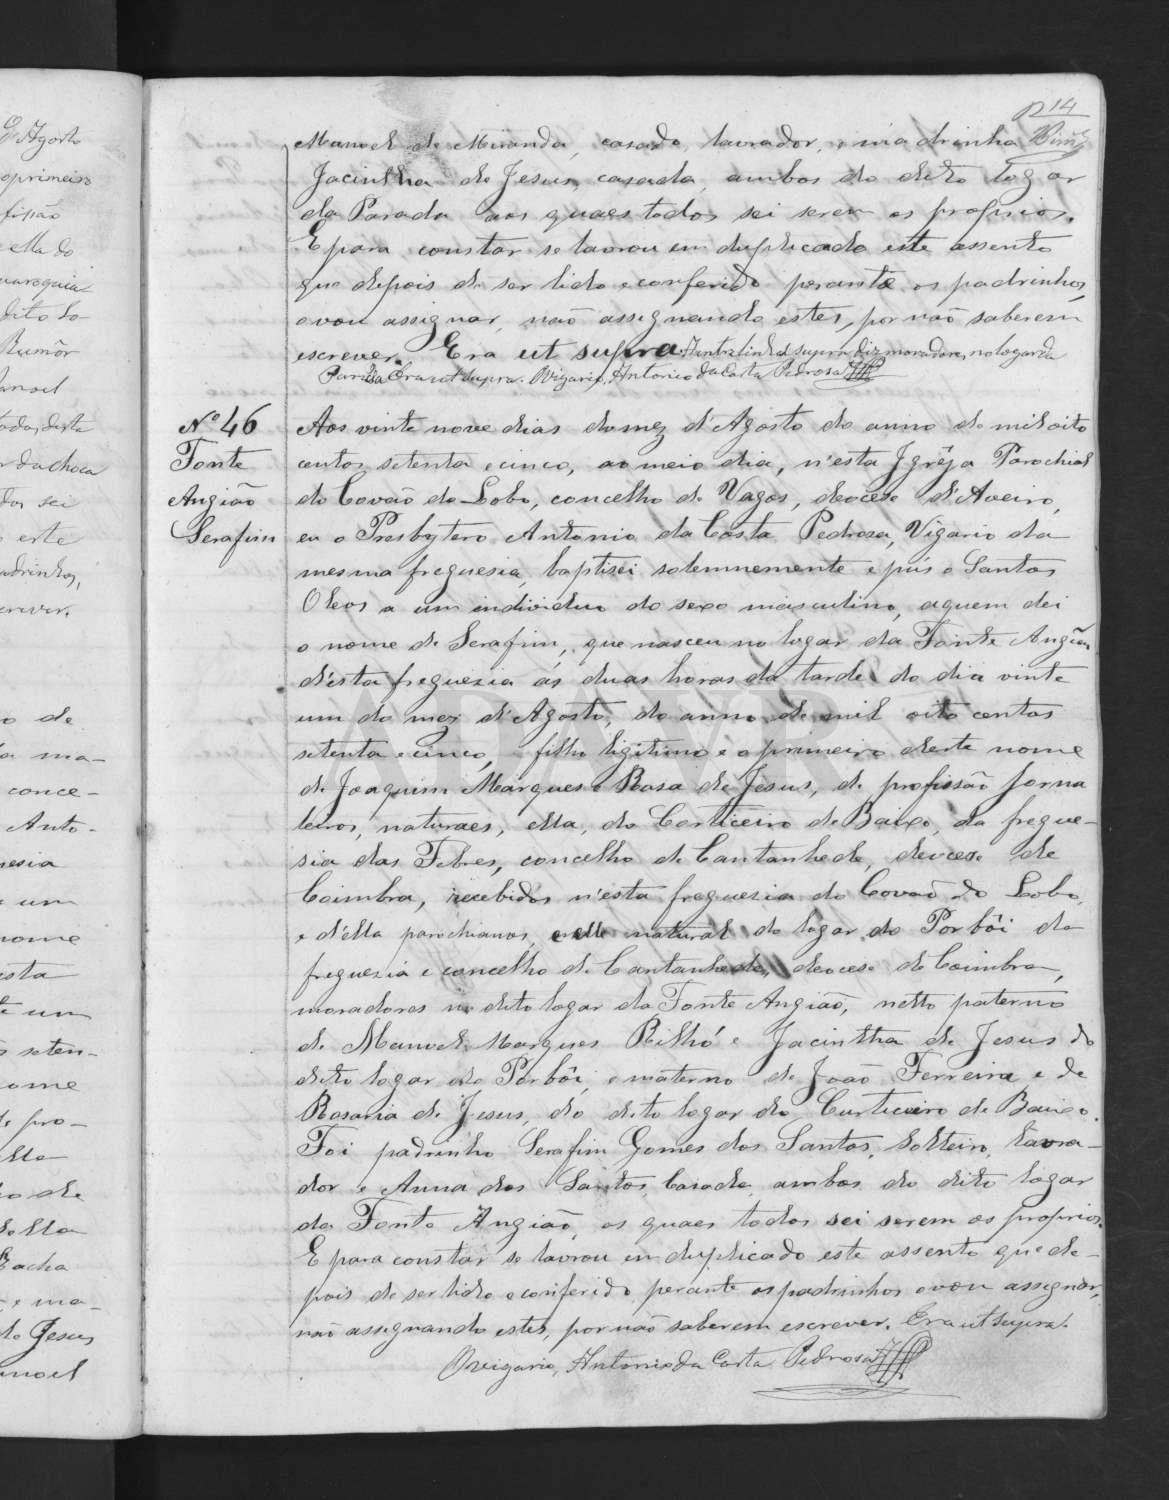 14
Manoel de Miranda, casado, lavrador, e madrinha
Jacintha de Jesus, casada, ambos do dito logar
da Parada aos quaes todos sei serem os proprios.
E para constar se lavrou em duplicado este assento
que depois de ser lido e conferido perante os padrinhos,
o vou assignar, não assignando estes, por não saberem
escrever. Era ut supra. A entrelinha supra diz moradores, no logar da
Parada Era ut supra. O vigario, Antonio da Costa Pedrosa
Nº 46
Fonte
Angião
Serafim
Aos vinte nove dias do mez d'Agosto do anno de mil oito
centos setenta e cinco, ao meio dia, n'esta Igrêja Parochial
do Covão do Lobo, concelho de Vagos, deocese d'Aveiro,
eu o Presbytero Antonio da Costa Pedrosa, Vigario da
mesma freguesia, baptisei solemnemente e pus o Santos
Oleos a um individuo do sexo masculino, aquem dei
o nome de Serafim, que nasceu no logar da Fonte Angião
d'esta freguezia ás duas horas da tarde do dia vinte
um do mez d'Agosto, do anno de mil oito centos
setenta e cinco, filho ligitimo e o primeiro deste nome
de Joaquim Marques e Rosa de Jesus, de profissão jorna
leiros, naturaes, ella, do Corticeiro de Baixo, da fregue-
sia das Febres, concelho de Cantanhede, deocese de
Coimbra, recebidos n'esta freguezia do Covão do Lobo,
e d'ella parochianos, e elle natural do logar do Porbôi da
freguezia e concelho de Cantanhede, deocese de Coimbra,
moradores no dito logar da Fonte Angião, netto paterno
de Manoel Marques Rilhó e Jacintha de Jesus do
dito logar do Porbôi, e materno de João Ferreira e de
Rosaria de Jesus, do dito logar do Curticeiro de Baixo.
Foi padrinho Serafim Gomes dos Santos, Solteiro, lavra-
dor e Anna dos Santos, Casada, ambos do dito logar
da Fonte Angião, os quaes todos sei serem os proprios.
E para constar se lavrou em duplicado este assento que de-
pois de ser lido e conferido perante os padrinhos o vou assignar,
não assignando estes, por não saberem escrever. Era ut supra.
O vigario, Antonio da Costa Pedrosa